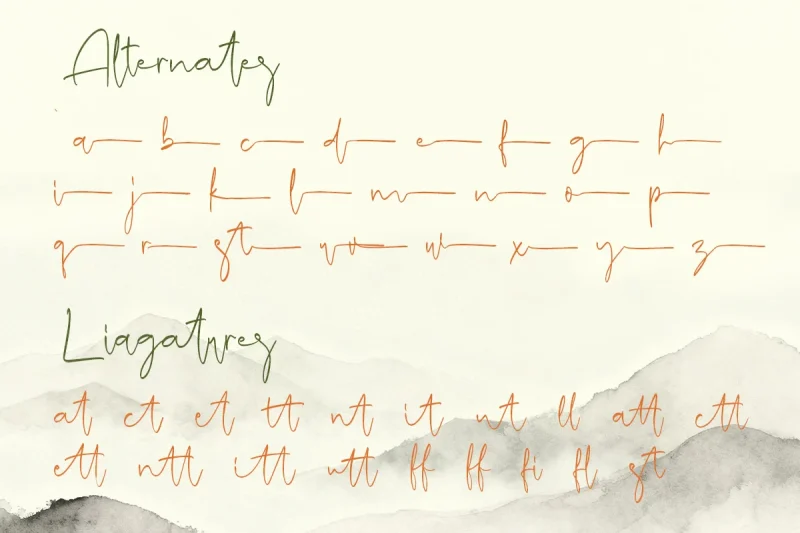 Alternates
a b c d e f g h
i j k l m n o p
q r st u v w x y z
Liagatures
at ct et tt nt it ut ll att ctt
ett ntt itt utt ff ff fi fl st